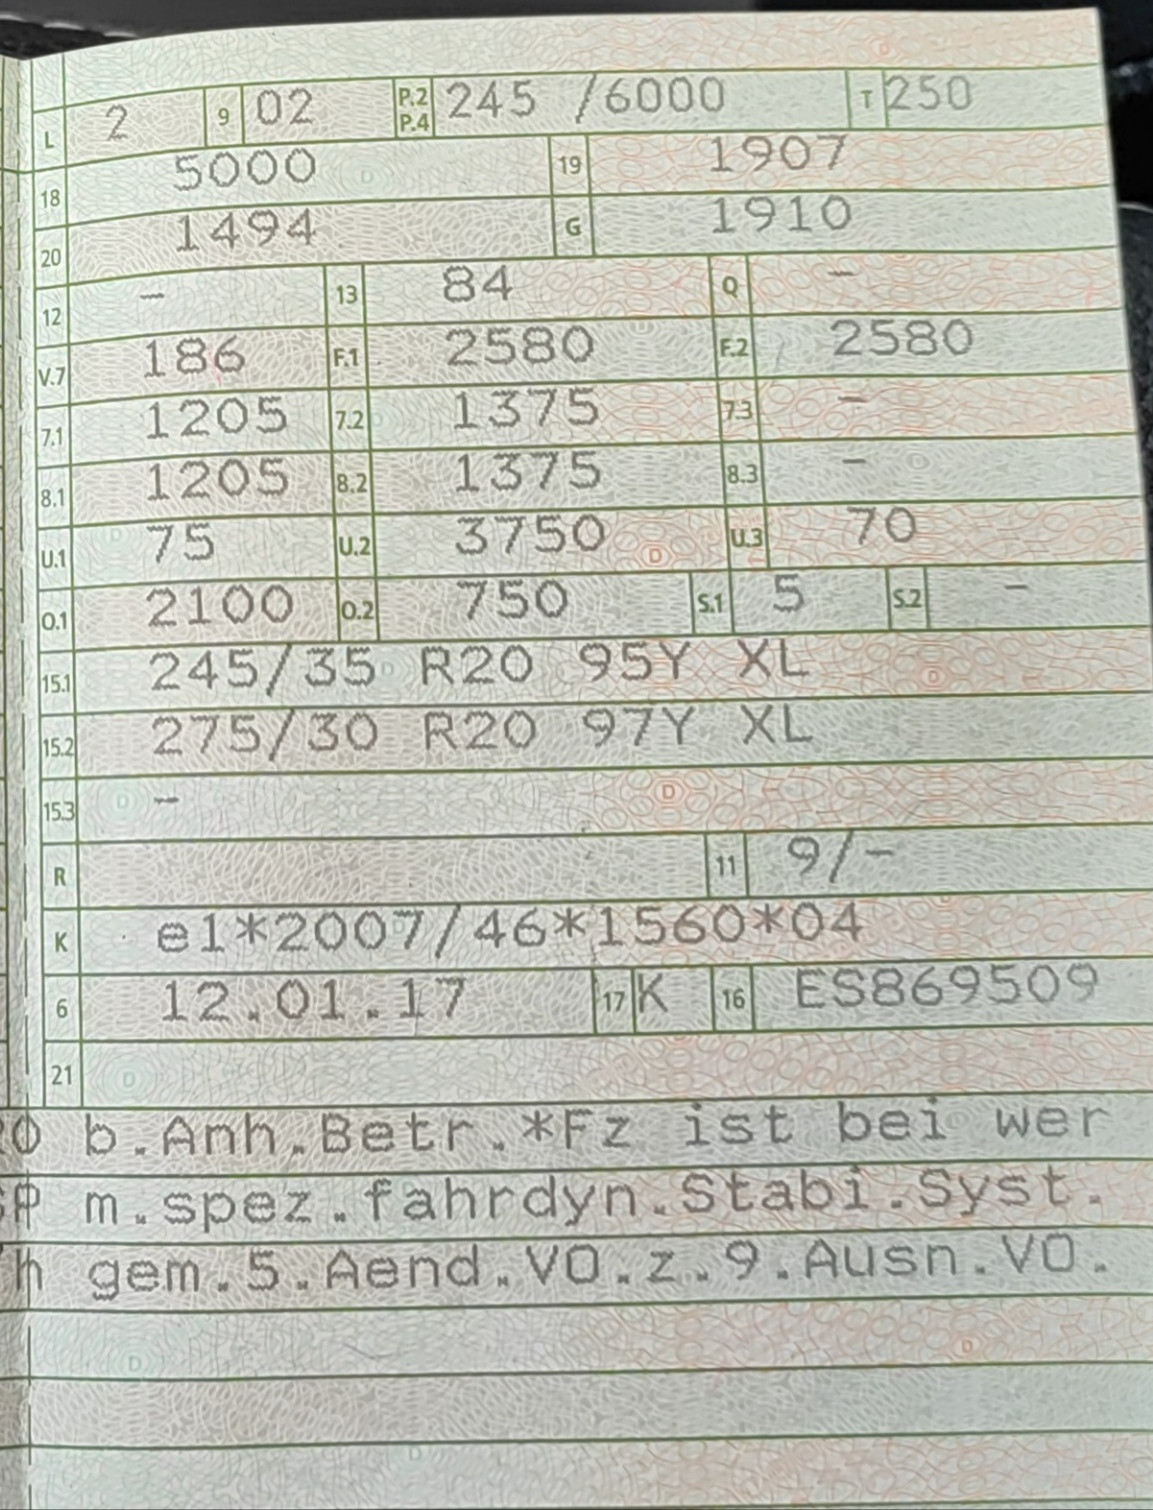 L 2 9 02 P.2 P.4 245 /6000 T 250
18 5000 19 1907
20 1494 G 1910
12 - 13 84 Q -
V.7 186 F.1 2580 F.2 2580
7.1 1205 7.2 1375 7.3 -
8.1 1205 8.2 1375 8.3 -
U.1 75 U.2 3750 U.3 70
O.1 2100 O.2 750 S.1 5 S.2 -
15.1 245/35 R20 95Y XL
15.2 275/30 R20 97Y XL
15.3 -
R 11 9/-
K e1*2007/46*1560*04
6 12.01.17 17 K 16 ES869509
21
b.Anh.Betr.*Fz ist bei wer
m.spez.fahrdyn.Stabi.Syst.
h gem.5.Aend.VO.z.9.Ausn.VO.